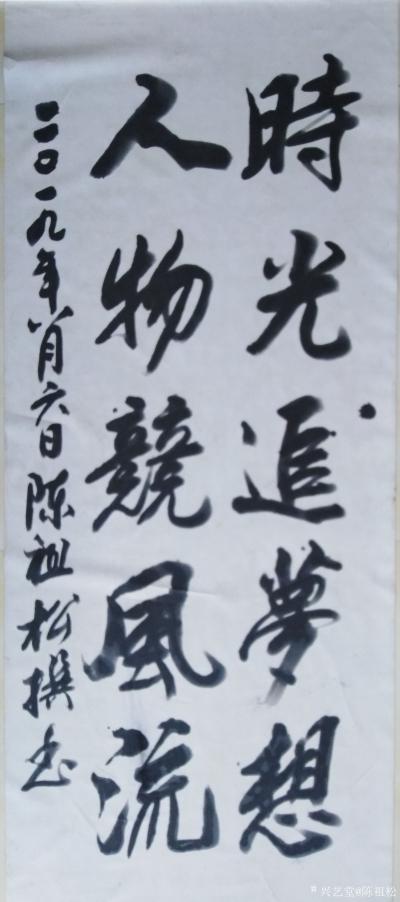 時光追夢想
人物競風流
二〇一九年八月六日陈祖松撰书
兴艺堂@陈祖松